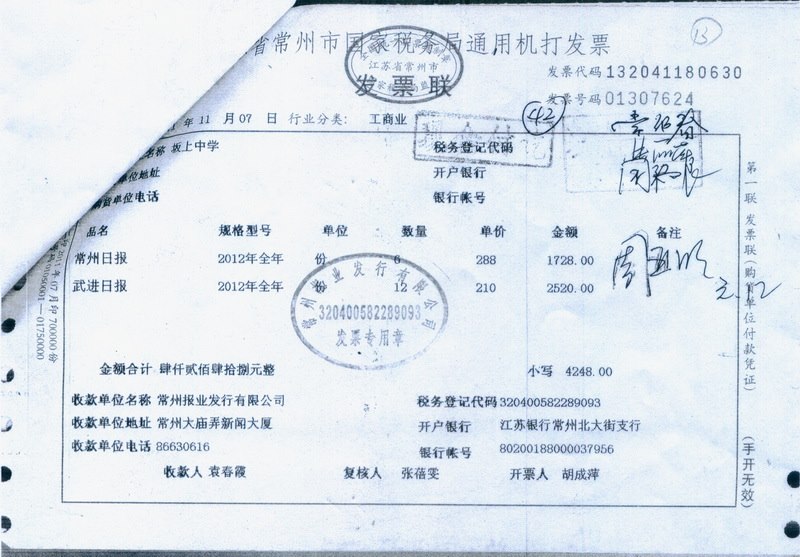 省常州市国家税务局通用机打发票
江苏省常州市
发票联
发票代码 132041180630
发票号码 01307624
13
42
11 月 07 日 行业分类: 工商业
现金付讫
名称 坂上中学 税务登记代码
单位地址 开户银行
单位电话 银行帐号
品名 规格型号 单位 数量 单价 金额 备注
常州日报 2012年全年 份 6 288 1728.00
武进日报 2012年全年 份 12 210 2520.00
常州报业发行有限公司
320400582289093
发票专用章
金额合计 肆仟贰佰肆拾捌元整 小写 4248.00
收款单位名称 常州报业发行有限公司 税务登记代码 320400582289093
收款单位地址 常州大庙弄新闻大厦 开户银行 江苏银行常州北大街支行
收款单位电话 86630616 银行帐号 80200188000037956
收款人 袁春霞 复核人 张蓓雯 开票人 胡成萍
第一联 发票联(购货单位付款凭证)
(手开无效)
年07月印700000份
01750000